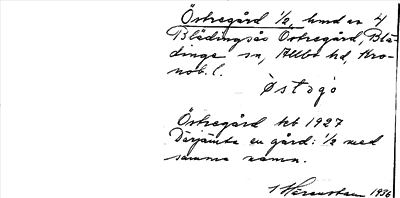 Östregård 1/2, hmd av 4
Blädingsås Östregård, Blä-
dinge sn, Allbo hd, Kro-
nob. l.
Östregård tkt 1927
Därjämte en gård: 1/2 med
samma namn.
1936